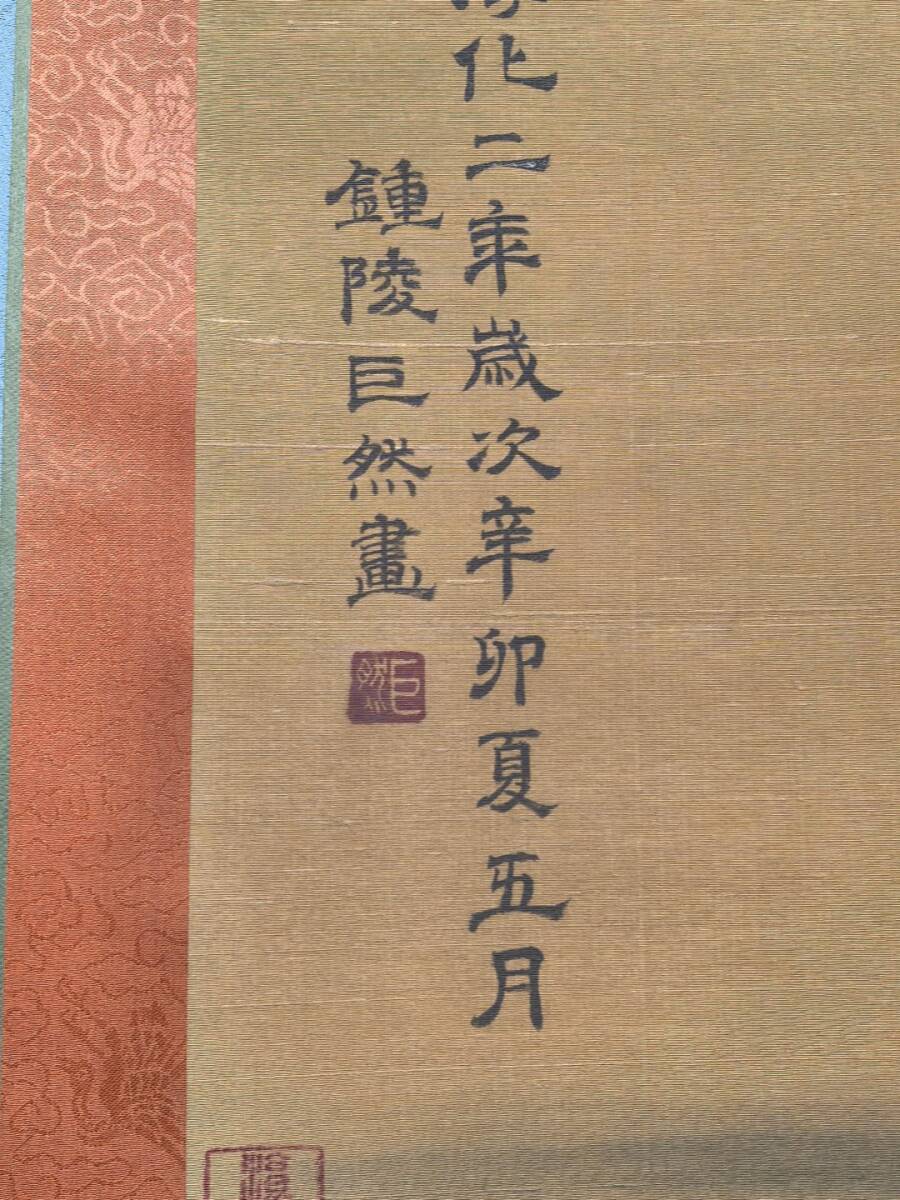 化二年歲次辛卯夏五月
鍾陵巨然畫
巨然